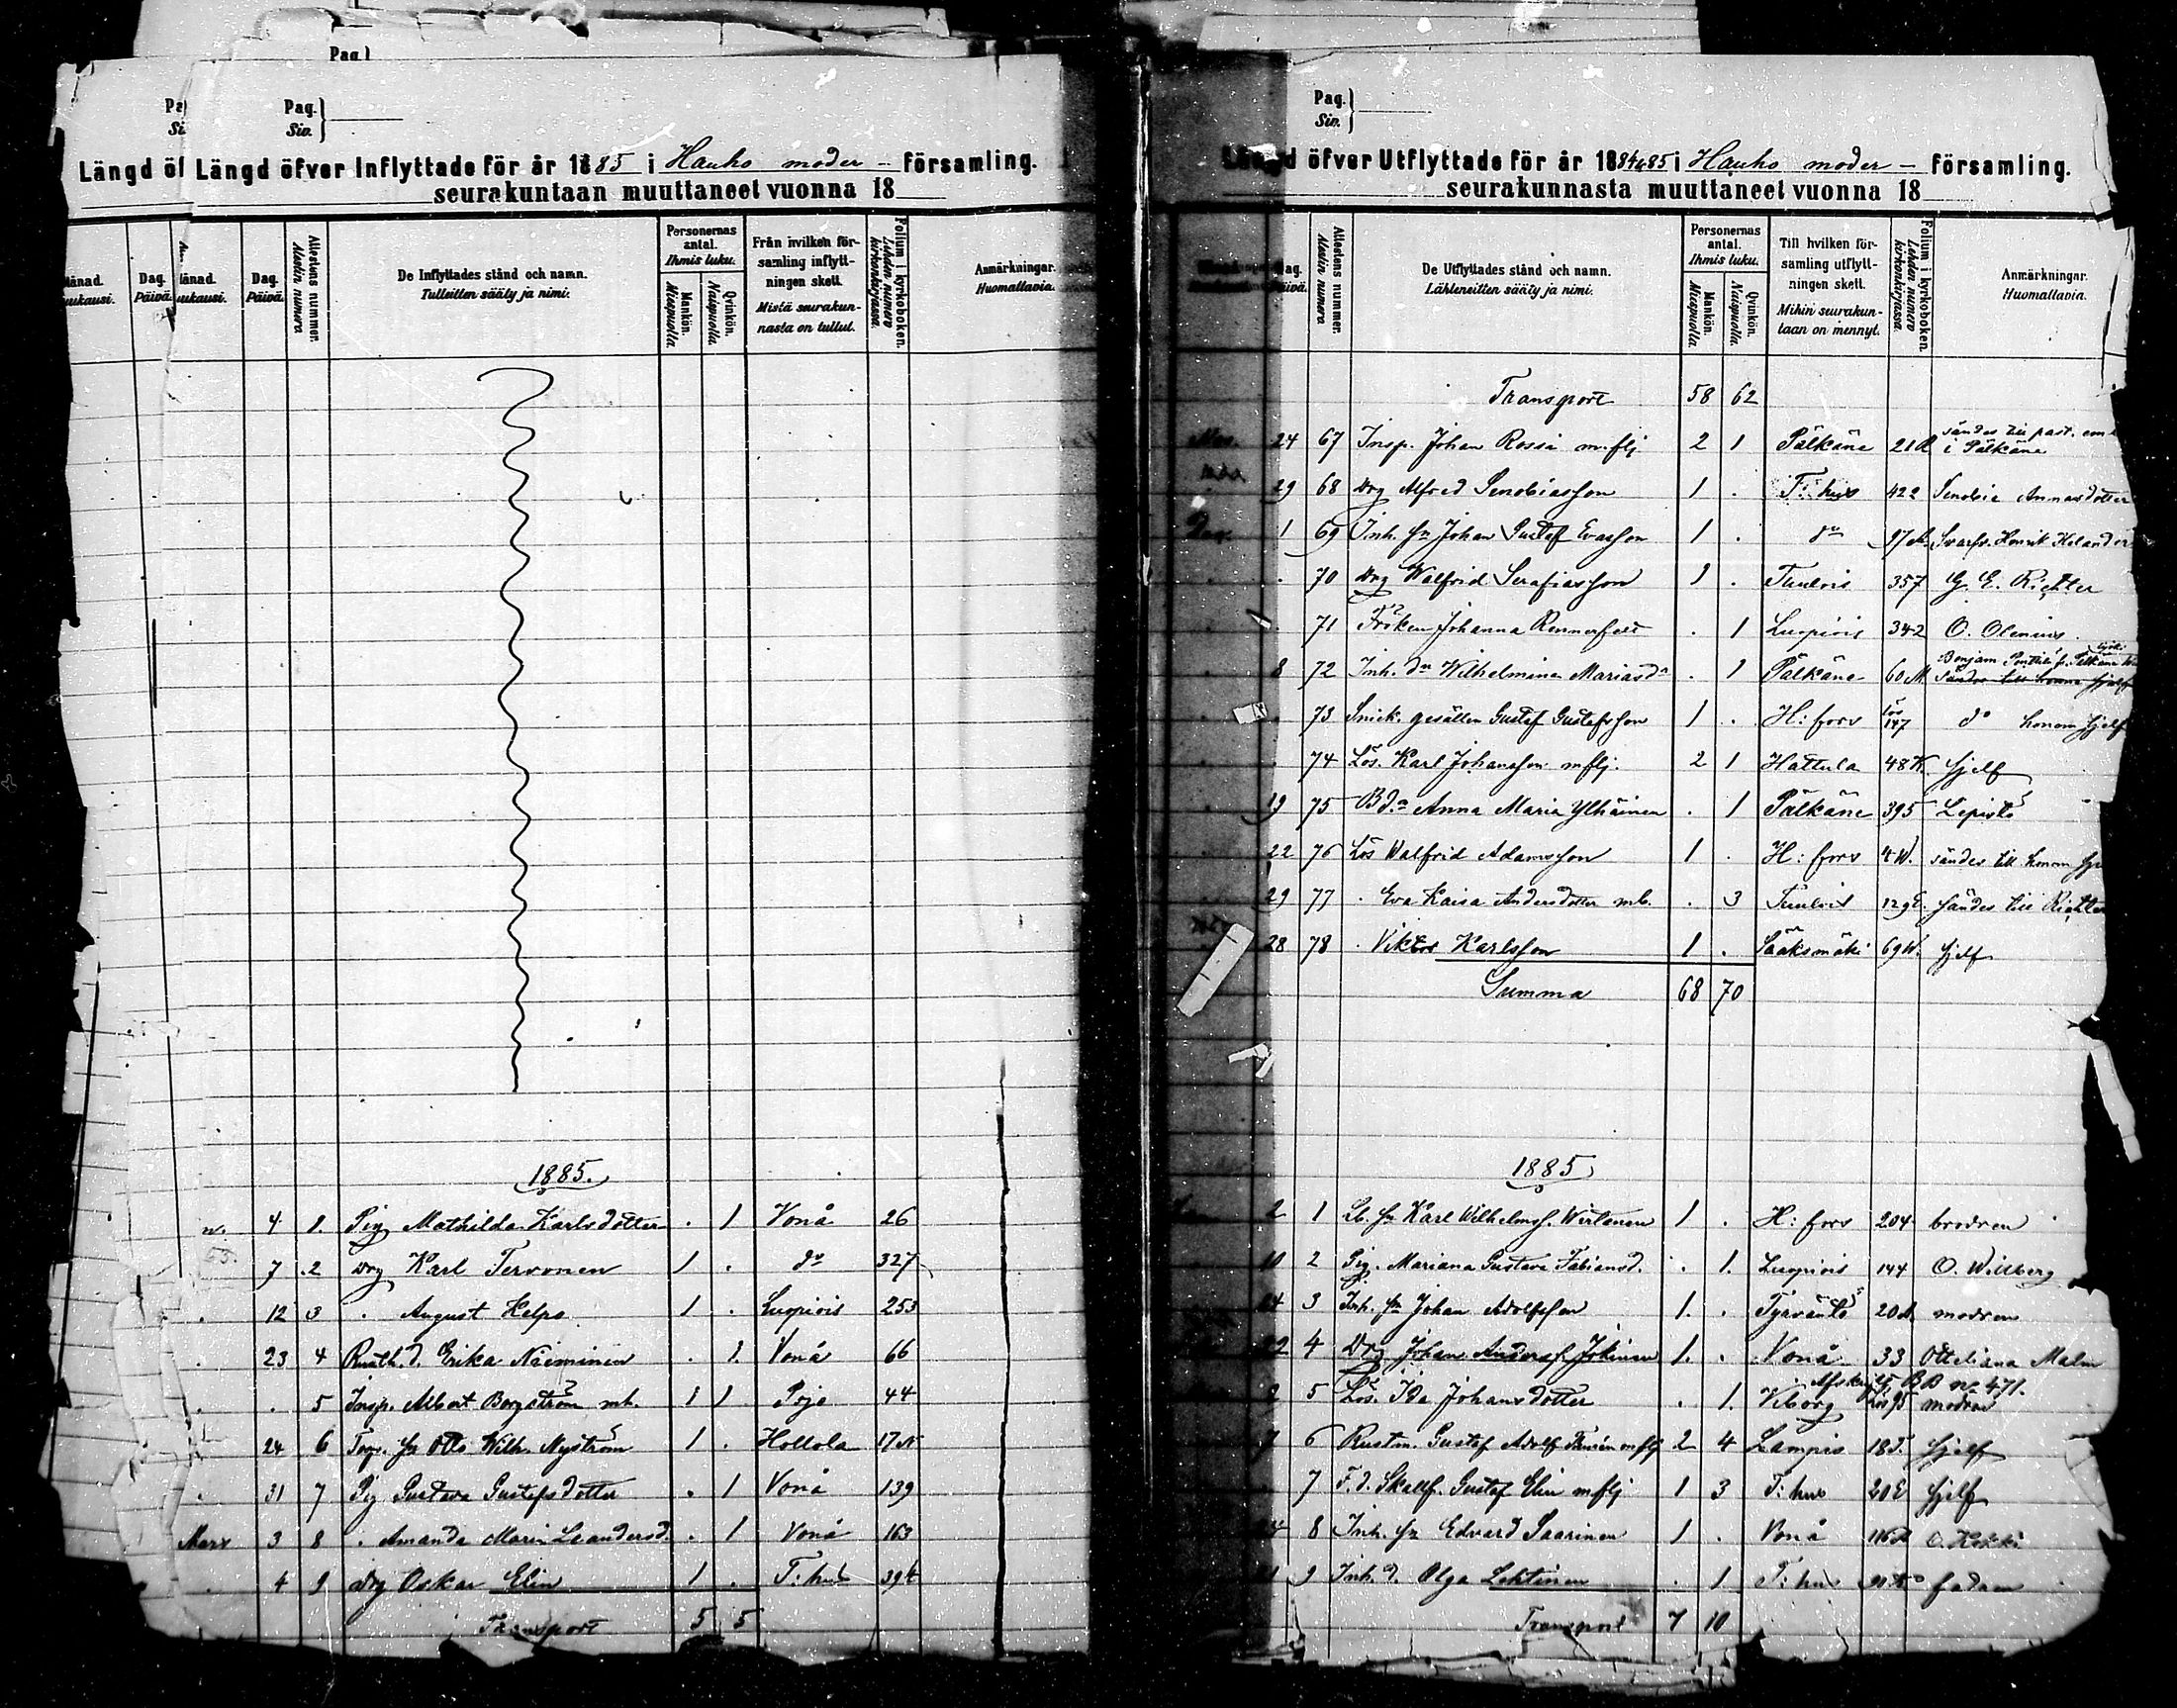 Pag.
Pag.
Siv.
Längd öfver Inflyttade för år 1885 i Hauho moder - församling.
seurakuntaan muuttaneet vuonna 18
Månad. Kuukausi.
Dag. Päivä.
Attestens nummer. Atestin numero
De Inflyttades stånd och namn. Tulleitten sääty ja nimi.
Personernas antal. Ihmis luku.
Mankön. Miespuolia.
Qvinkön. Naispuolia.
Från hvilken församling inflyttningen skett. Mistä seurakunnasta on tullut.
Folium i kyrkoboken. Lehden numero kirkonkirjassa.
Anmärkningar. Huomattavia.
1885.
4 1. Pig Mathilda Karlsdotter . 1 Vonå 26
7 2 Drg Karl Tervonen 1 . do 327
. 12 3 . August Helps 1 . Luopiois 253
. 23 4 Rusth.d. Erika Näiminen . 1. Vonå 66
. . 5 Insp. Albert Bergström mh. 1 1 Pojo 44
24 6 Torp. sn Otto Wilh. Nyström 1 . Hollola 17
. 31 7 Pig Gustava Gustafsdotter . 1 Vonå 139
Mars 3 8 . Amanda Maria Leandersd. . 1 Vonå 163
. 4 9 Drg Oskar Elin 1 . T:hus 394
Transport 5 5
Pag.
Siv.
Längd öfver Utflyttade för år 1884 & 85 i Hauho moder - församling.
seurakunnasta muuttaneet vuonna 18
Dag. Päivä.
Attestens nummer. Atestin numero
De Utflyttades stånd och namn. Lähteneitten sääty ja nimi.
Personernas antal. Ihmis luku.
Mankön. Miespuolia.
Qvinkön. Naispuolia.
Till hvilken församling utflyttningen skett. Mihin seurakuntaan on mennyt.
Folium i kyrkoboken. Lehden numero kirkonkirjassa.
Anmärkningar. Huomattavia.
Transport 58 62
24 67 Insp. Johan Rossi m. flj. 2 1 Pälkäne 21 sändes till past. i Pälkäne
29 68 Drg Alfred Senobiasson 1 . T:hus 422 Senobia Annasdotter
Dec. 1 69 Inh. sn Johan Gustaf Evasson 1 . do 97 Svarfv. Henrik Helander
. 70 Drg Walfrid Serafiasson 1 . Tuulois 357 G. E. Richter
. 71 Fröken Johanna Rennerfelt . 1 Luopiois 342 O. Olenius.
8 72 Inh. dr Wilhelmina Mariasd. . 1 Pälkäne 60 M. Benjam. Pentilä fr. Pälkäne
. 73 Snick. gesällen Gustaf Gustafsson 1 . H:fors Lös 147 do honom sjelf
. 74 Lös. Karl Johansson mflj. 2 1 Hattula 48 K. sjelf
19 75 Bd. Anna Maria Ylhäinen . 1 Pälkäne 395 Lepistö
22 76 Lös Walfrid Adamsson 1 . H:fors 4 W. sändes till honom
29 77 . Eva Kaisa Andersdotter mb. . 3 Tuulois 129 E. sändes till Richter
28 78 . Viktor Karlsson 1 . Sääksmäki 69 W. sjelf
Summa 68 70
1885
2 1 Lb. sn Karl Wilhelmss. Wirtanen 1 . H:fors 204 brodren
10 2 Pig. Mariana Gustava Fabiansd. . 1. Luopiois 144 O. Willberg
24 3 Inh. sn Johan Adolfsson 1. . Tyrväntö 20 A. modren
4 Drg Johan Anderss. Jokinen 1. . Vonå 33 Otteliana Malm
Afskrift BB no 471.
5 Lös. Ida Johansdotter . 1. Viborg Lös 95 modren
7 6 Rustm. Gustaf Adolf mflj 2 4 Lampis 18 sjelf
. 7 F.d. Skallf. Gustaf Elin mflj 1 3 T:hus 20 E sjelf
8 Inh. sn Edvard Saarinen 1 . Vonå 116 O. Kokki
9 Inh. d. Olga Lehtinen . 1 T:hus fadren
Transport 7 10